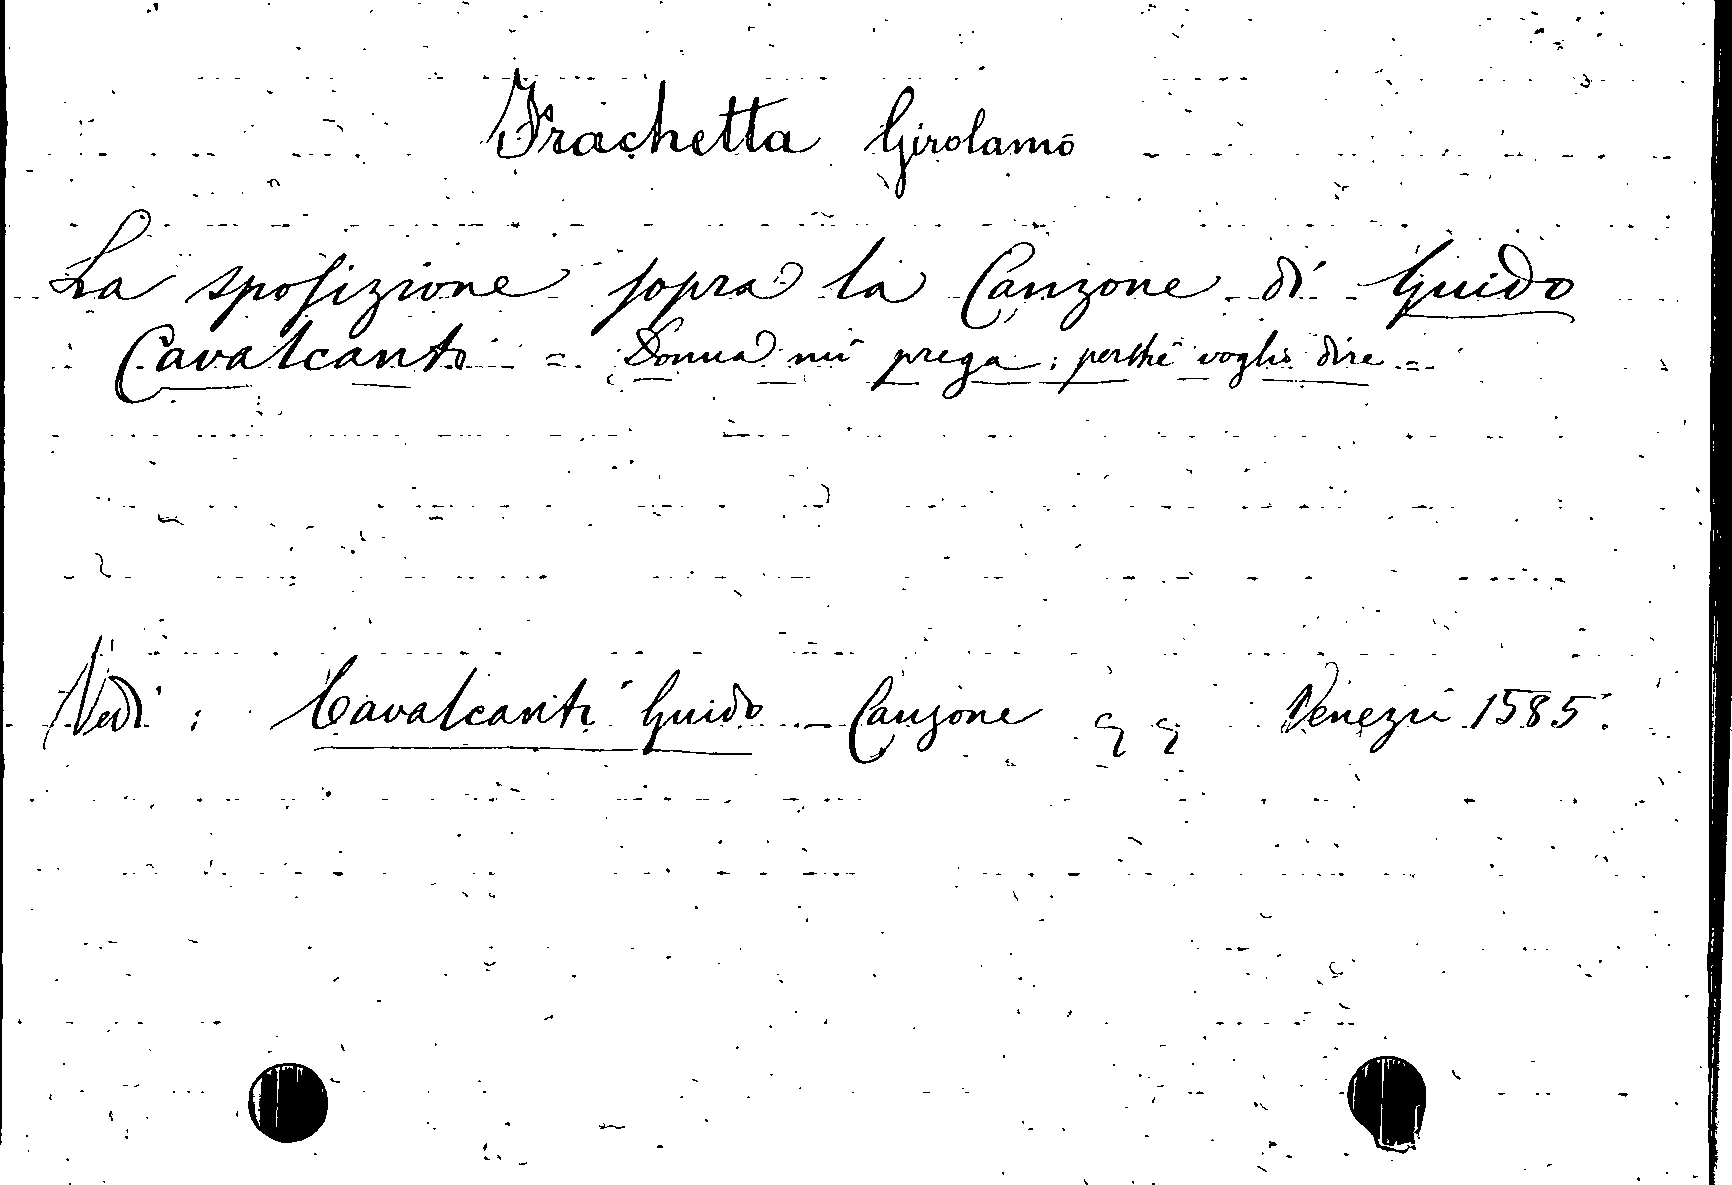 Frachetta Girolamo
La sposizione sopra la Canzone di Guido
Cavalcanti = Donna mi prega: perchè voglio dire =
Vedi: Cavalcanti Guido - Canzone Venezia 1585.